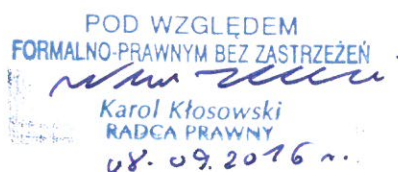 POD WZGLĘDEM
FORMALNO-PRAWNYM BEZ ZASTRZEŻEŃ
Karol Kłosowski
RADCA PRAWNY
08. 09. 2016 r.